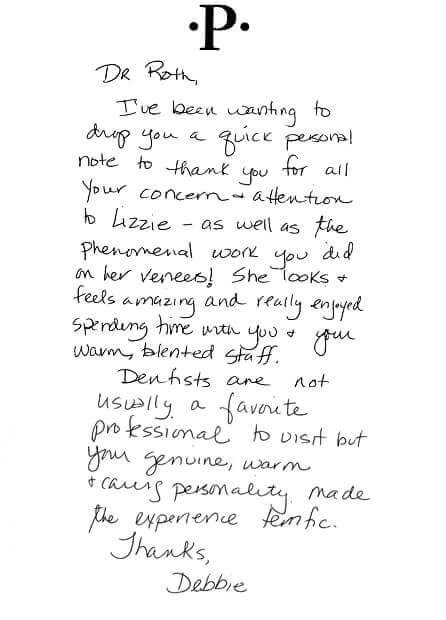 ·P·
Dr Roth,
I've been wanting to
drop you a quick personal
note to thank you for all
your concern + attention
to Lizzie - as well as the
phenomenal work you did
on her veneers! She looks +
feels amazing and really enjoyed
spending time with you + your
warm, talented staff.
Dentists are not
usually a favorite
professional to visit but
your genuine, warm
+ caring personality made
the experience terrific.
Thanks,
Debbie